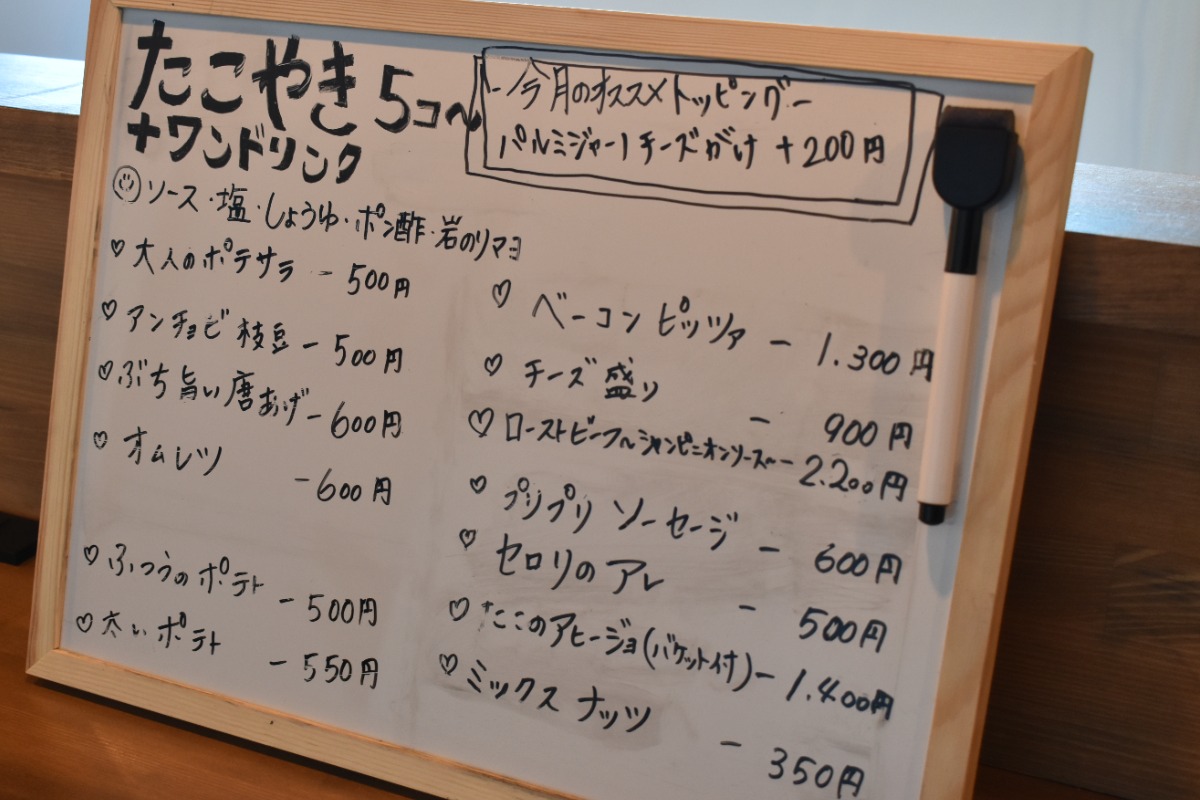 たこやき 5コ〜
+ワンドリンク
-今月のオススメトッピング-
パルミジャーノチーズがけ +200円
ソース・塩・しょうゆ・ポン酢・岩のりマヨ
♡大人のポテサラ - 500円
♡アンチョビ枝豆 - 500円
♡ぶち旨い唐あげ - 600円
♡オムレツ - 600円
♡ふつうのポテト - 500円
♡太いポテト - 550円
♡ベーコンピッツァ - 1.300円
♡チーズ盛り - 900円
♡ローストビーフ〜シャンピニオンソース〜 - 2.200円
♡プリプリソーセージ - 600円
♡セロリのアレ - 500円
♡たこのアヒージョ(バケット付) - 1.400円
♡ミックスナッツ - 350円